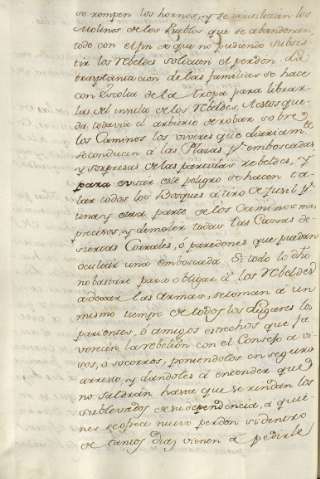 se rompen los hornos, y se inutilizan los
Molinos de los Pueblos que se abandonan
todo con el fin de que no pudiendo subsis-
tir los Rebeldes soliciten el perdon. La
transplantacion de las familias se hace
con Escolta de la Tropa para librar-
las del insulto de los Rebeldes. A estos que-
da todavia el arbitrio de robar sobre
los Caminos los viveres que diariam.te
se conducen á las Plazas y emboscadas
y sorpresas de las partidas rebeldes, y
para evitar este peligro se hacen ta-
lar todos los Bosques á tiro de fusil p.r
una y otra parte de los Caminos mas
precisos, y demoler todas las Casas de-
siertas Corrales, ó paredones que puedan
ocultar una emboscada. Si todo lo dho
no bastare para obligar á los Rebeldes
a dexar las armas, se toman á un
mismo tiempo de todos los Lugares los
parientes, ó amigos estrechos que fa-
vorecen la rebelion con el Consejo a vi-
sos, ó socorros, poniendolos en seguro
arresto, y dandoles á entender que
no saldrán hasta que se rindan los
sublevados de su dependencia, á quie-
nes se ofrece nuevo perdon si dentro
de tantos dias vienen á pedirle